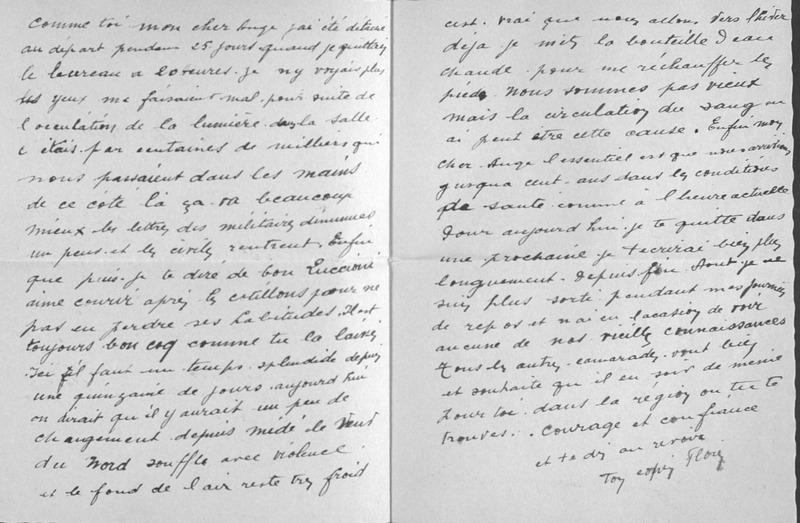 Comme toi mon cher Ange j'ai été détaché
au départ pendan 25 jours quand je quittais
le bureau a 20 heures. je ny voyais plus
les yeux me faisaient mal. pour suite de
l'occulation de la lumière. la salle
c étais par centaines de milliers qui
nous passaient dans les mains
de ce coté là ça va beaucoup
mieux les lettres des militaires diminues
un peu. et les civils rentrent. Enfin
que puis-je te dire de bon Luccioni
aime courir après les cotillons pour ne
pas en perdre ses habitudes. Il est
toujours bon coq comme tu la laissé
Ici Il faut un temps splendide depuis
une quinzaine de jours. aujourd hui
on dirait qu'il y aurait un peu de
changement. depuis midi le vent
du Nord souffle avec violence
et le fond de l'air reste très froid
cest. vrai que nous allons vers l'hiver
déja je mets la bouteille d'eau
chaude pour me réchauffer les
pieds. nous sommes pas vieux
mais la circulation du sang
ai peut être cette cause. Enfin mon
cher. Ange l'essentiel est que nous arrivions
jusqua cent-ans dans les conditions
de santé comme à l'heure actuelle
Pour aujourd hui. je te quitte dans
une prochaine je t ecrirai bien plus
longuement. Depuis fin Aout je ne
suis plus sorti pendant mes journées
de repos et n'ai eu locasion de voir
aucune de nos vieilles connaissances
Tous les autres camarades vont bien
et souhaite qu il en soir de meme
Pour toi. dans la région ou tu te
trouves. . Courage et confiance
et te dis au revoir
Ton copin